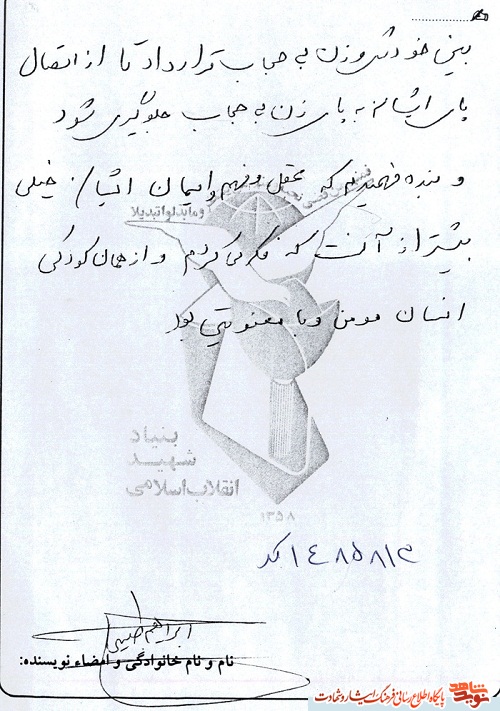 بین خودش و زن بی حجاب قرار داد تا از اتصال
پای ایشان به پای زن بی حجاب جلوگیری شود
و بنده فهمیدم که عقل و فهم و ایمان ایشان خیلی
بیشتر از آنست که فکر می کردم و از همان کودکی
انسان مومن و با معنویتی بود
وما بدلوا تبدیلا
بنیاد
شهید
انقلاب اسلامی
۱۳۵۸
کد ۱۴۸۵۸۱۳
ابراهیم
نام و نام خانوادگی و امضاء نویسنده:
نوید شاهد
پایگاه اطلاع رسانی فرهنگ ایثار و شهادت